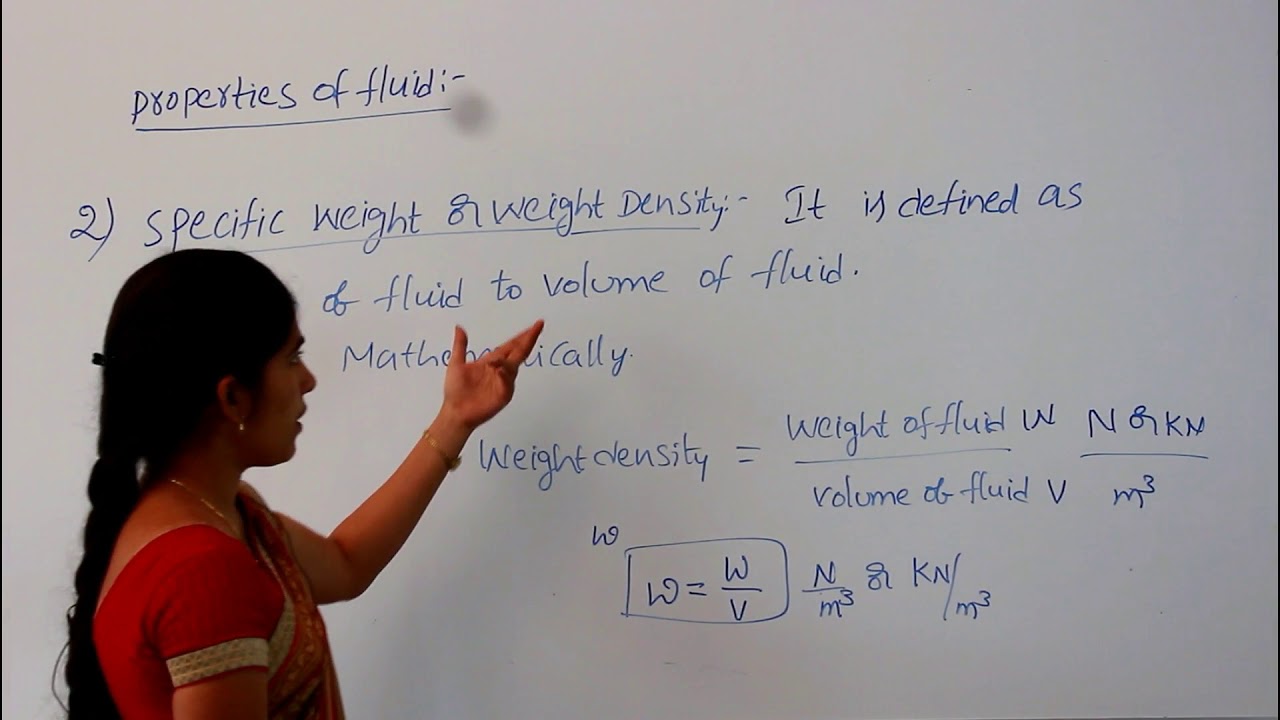 properties of fluid:-
2) Specific Weight or Weight Density:- It is defined as
of fluid to volume of fluid.
Weight density = Weight of fluid W / volume of fluid V N or KN / m³
w
w = W / V N / m³ or KN/m³